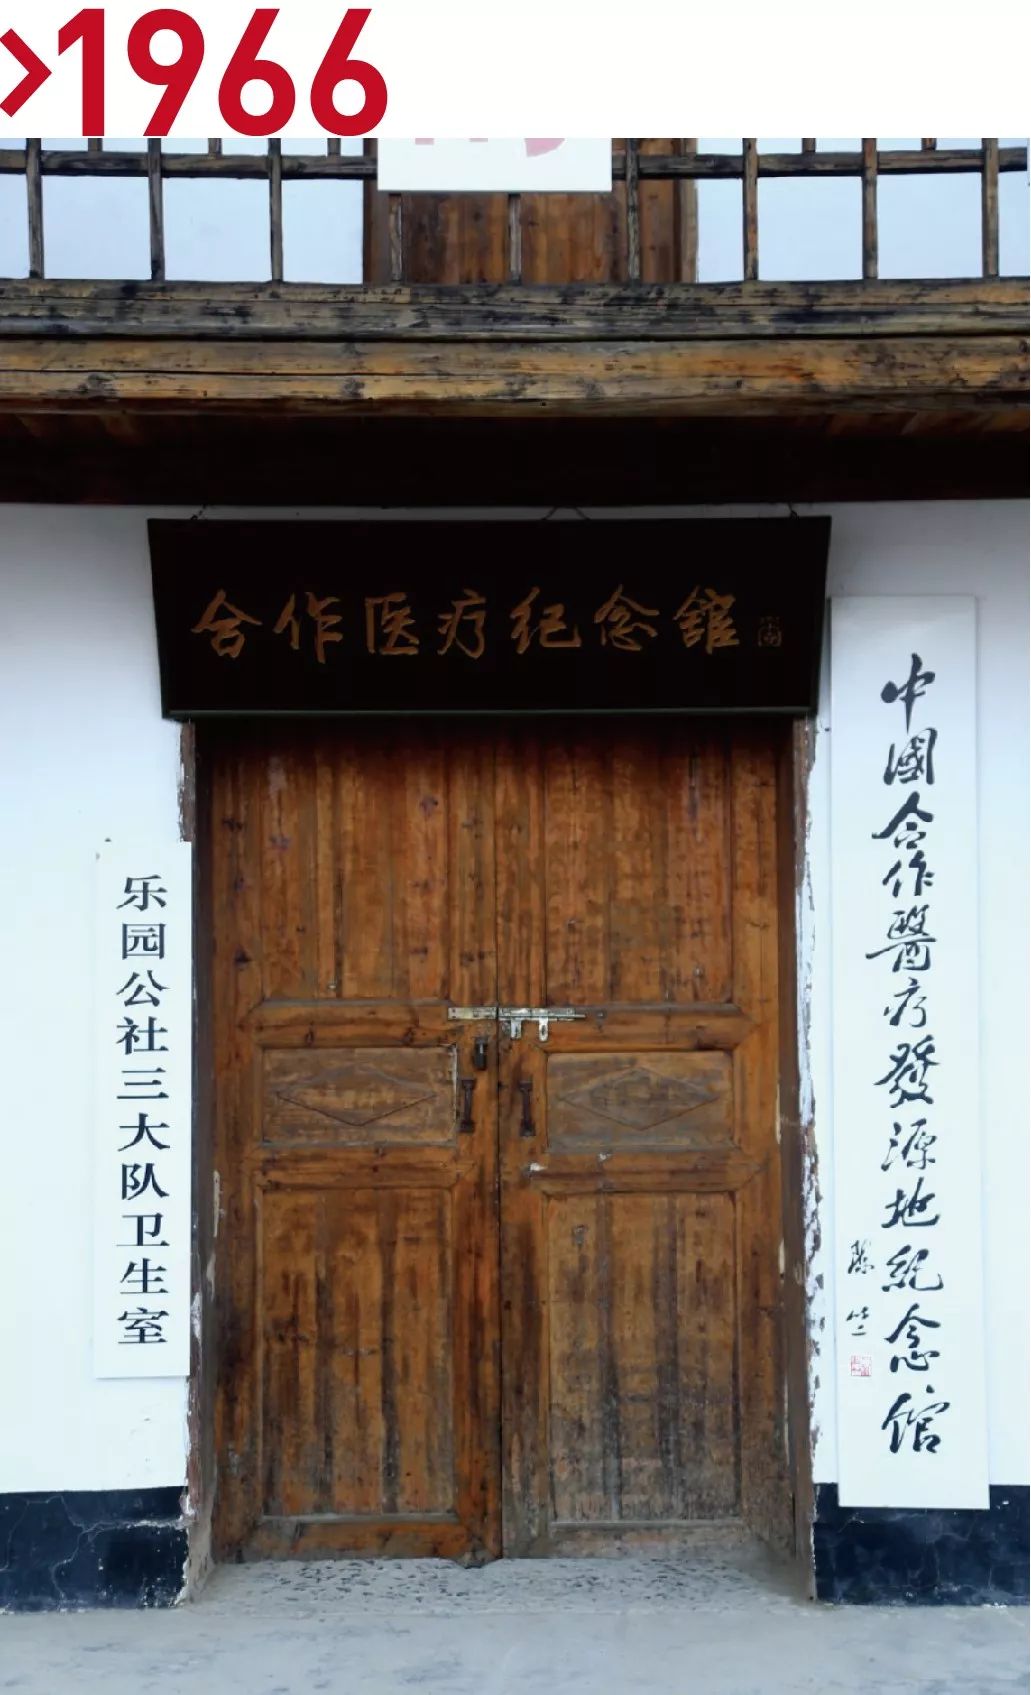 >1966
合作医疗纪念館
乐园公社三大队卫生室
中國合作醫疗發源地紀念馆